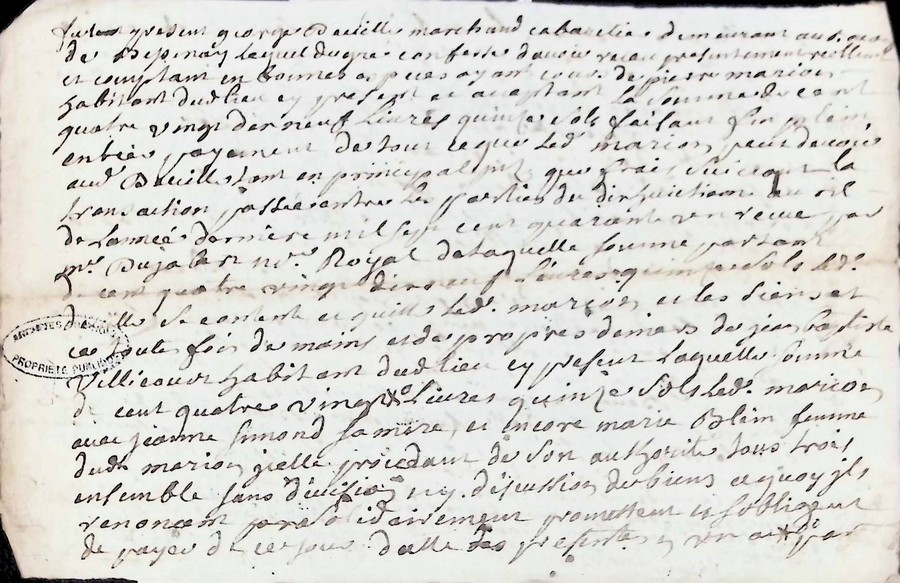 fut present george Deville marchand cabaretier demeurant au
de Depinay lequel de gre confesse d'avoir receu presentement reellement
et comptant en bonnes especes ayant cours de pierre marion
habitant dudit lieu cy present et acceptant la somme de cent
quatre vingt dix neuf Livres quinze sols faisant fin plein
entier payement de tout ce que led. marion peut devoir
aud. Deville tant en principal int. que frais suivant la
transaction passée entre les parties du dix huictieme avril
de l'année derniere mil sept cent quarante un recue par
me. Dujast nre. Royal de laquelle somme partant
de cent quatre vingt dix neuf Livres quinze sols led.
deville se contente et quitte led. marion et les siens et
ce toute fois de mains et de propres deniers de jean baptiste
Villecourt habitant dudit lieu cy present laquelle somme
de cent quatre vingt Livres quinze sols led. marion
avec jeanne simond sa mere, et encore marie Blein femme
dud. marion icelle procedant de son authorité tous trois
ensemble sans division ny discussion de biens a quoy ils
renoncent par solidairement promettent et s'obligent
de payer de ce jour datte des presentes en un an par
ARCHIVES PUBLIQUES
PROPRIÉTÉ PUBLIQUE